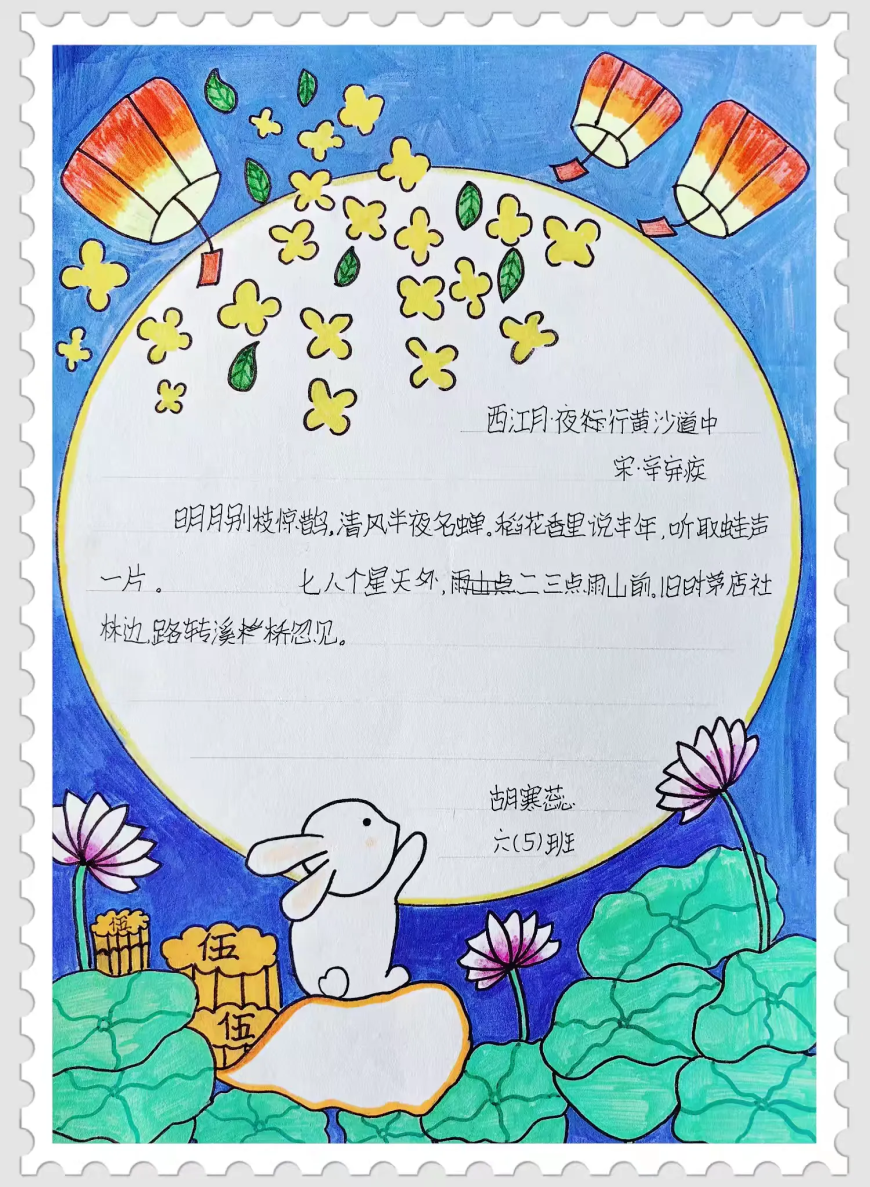 西江月·夜行黄沙道中
宋·辛弃疾
明月别枝惊鹊。清风半夜名蝉。稻花香里说丰年,听取蛙声
一片。 七八个星天外,雨山点二三点雨山前。旧时茅店社
林边,路转溪桥忽见。
胡寒蕊
六(5)班
伍
伍
伍